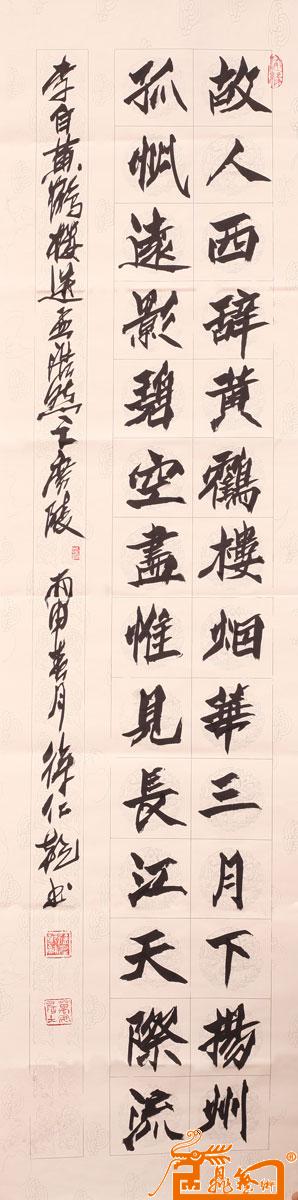 故人西辞黄鶴樓烟華三月下揚州
孤帆遠影碧空盡惟見長江天際流
李白黄鹤楼送孟浩然之廣陵 丙申春月 徐仁乾书